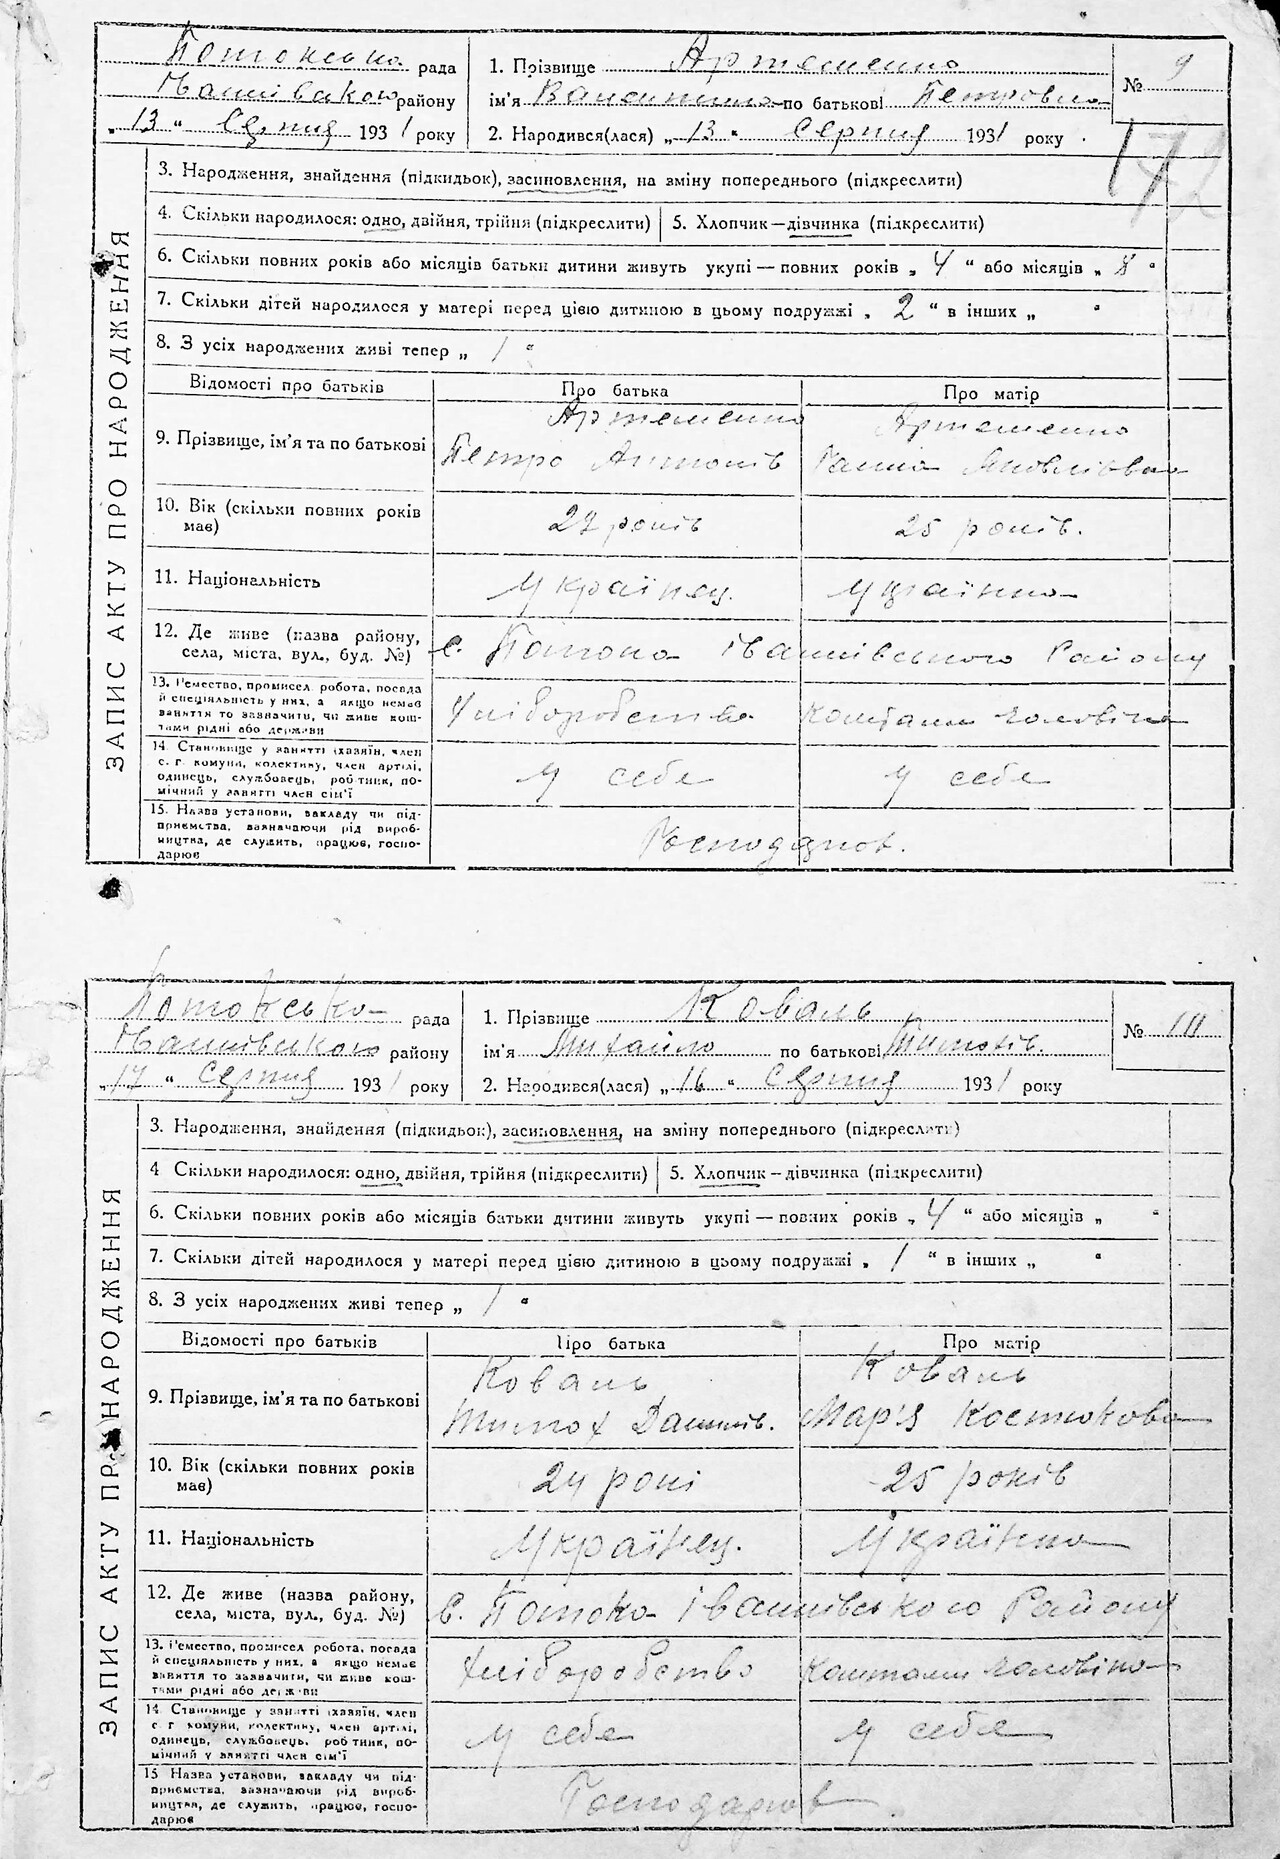 Потокська рада
Іванківського району
„ 13 “ Серпня 1931 року
1. Прізвище Артеменко
ім'я Валентина по батькові Петровна
2. Народився(лася) „ 13 “ Серпня 1931 року
№ 9
172
ЗАПИС АКТУ ПРО НАРОДЖЕННЯ
3. Народження, знайдення (підкидьок), засиновлення, на зміну попереднього (підкреслити)
4. Скільки народилося: одно, двійня, трійня (підкреслити) 5. Хлопчик—дівчинка (підкреслити)
6. Скільки повних років або місяців батьки дитини живуть укупі — повних років „ 4 “ або місяців „ 8 “
7. Скільки дітей народилося у матері перед цією дитиною в цьому подружжі „ 2 “ в інших „ “
8. З усіх народжених живі тепер „ 1 “
Відомості про батьків Про батька Про матір
9. Прізвище, ім'я та по батькові Артеменко Петро Антонів Артеменко Ганна Яковлівна
10. Вік (скільки повних років має) 27 років 25 років.
11. Національність Українец. Українка
12. Де живе (назва району, села, міста, вул., буд. №) с. Потока Іванківського Району
13. Ремество, промисел, робота, посада й спеціяльність у них, а якщо немає заняття то зазначити, чи живе коштами рідні або держави Хліборобство Коштами чоловіка
14. Становище у занятті (хазяїн, член с. г. комуни, колективу, член артілі, одинець, службовець, робітник, помічний у занятті член сім'ї У себе У себе
15. Назва установи, закладу чи підприємства, зазначаючи рід виробництва, де служить, працює, господарює Господарков.
Потокська рада
Іванківського району
„ 17 “ Серпня 1931 року
1. Прізвище Коваль
ім'я Михайло по батькові Тимохів.
2. Народився(лася) „ 16 “ Серпня 1931 року
№ 10
ЗАПИС АКТУ ПРО НАРОДЖЕННЯ
3. Народження, знайдення (підкидьок), засиновлення, на зміну попереднього (підкреслити)
4 Скільки народилося: одно, двійня, трійня (підкреслити) 5. Хлопчик—дівчинка (підкреслити)
6. Скільки повних років або місяців батьки дитини живуть укупі — повних років „ 4 “ або місяців „ “
7. Скільки дітей народилося у матері перед цією дитиною в цьому подружжі „ 1 “ в інших „ “
8. З усіх народжених живі тепер „ 1 “
Відомості про батьків Про батька Про матір
9. Прізвище, ім'я та по батькові Коваль Тимох Данилів. Коваль Мар'я Костюкова
10. Вік (скільки повних років має) 24 рокі 25 років
11. Національність Українец. Українка
12. Де живе (назва району, села, міста, вул., буд. №) с. Потока Іванківського Району
13. Ремество, промисел, робота, посада й спеціяльність у них, а якщо немає заняття то зазначити, чи живе коштами рідні або держави Хліборобство Коштами чоловіка
14. Становище у занятті (хазяїн, член с. г. комуни, колективу, член артілі, одинець, службовець, робітник, помічний у занятті член сім'ї У себе У себе
15 Назва установи, закладу чи підприємства, зазначаючи рід виробництва, де служить, працює, господарює Господарков